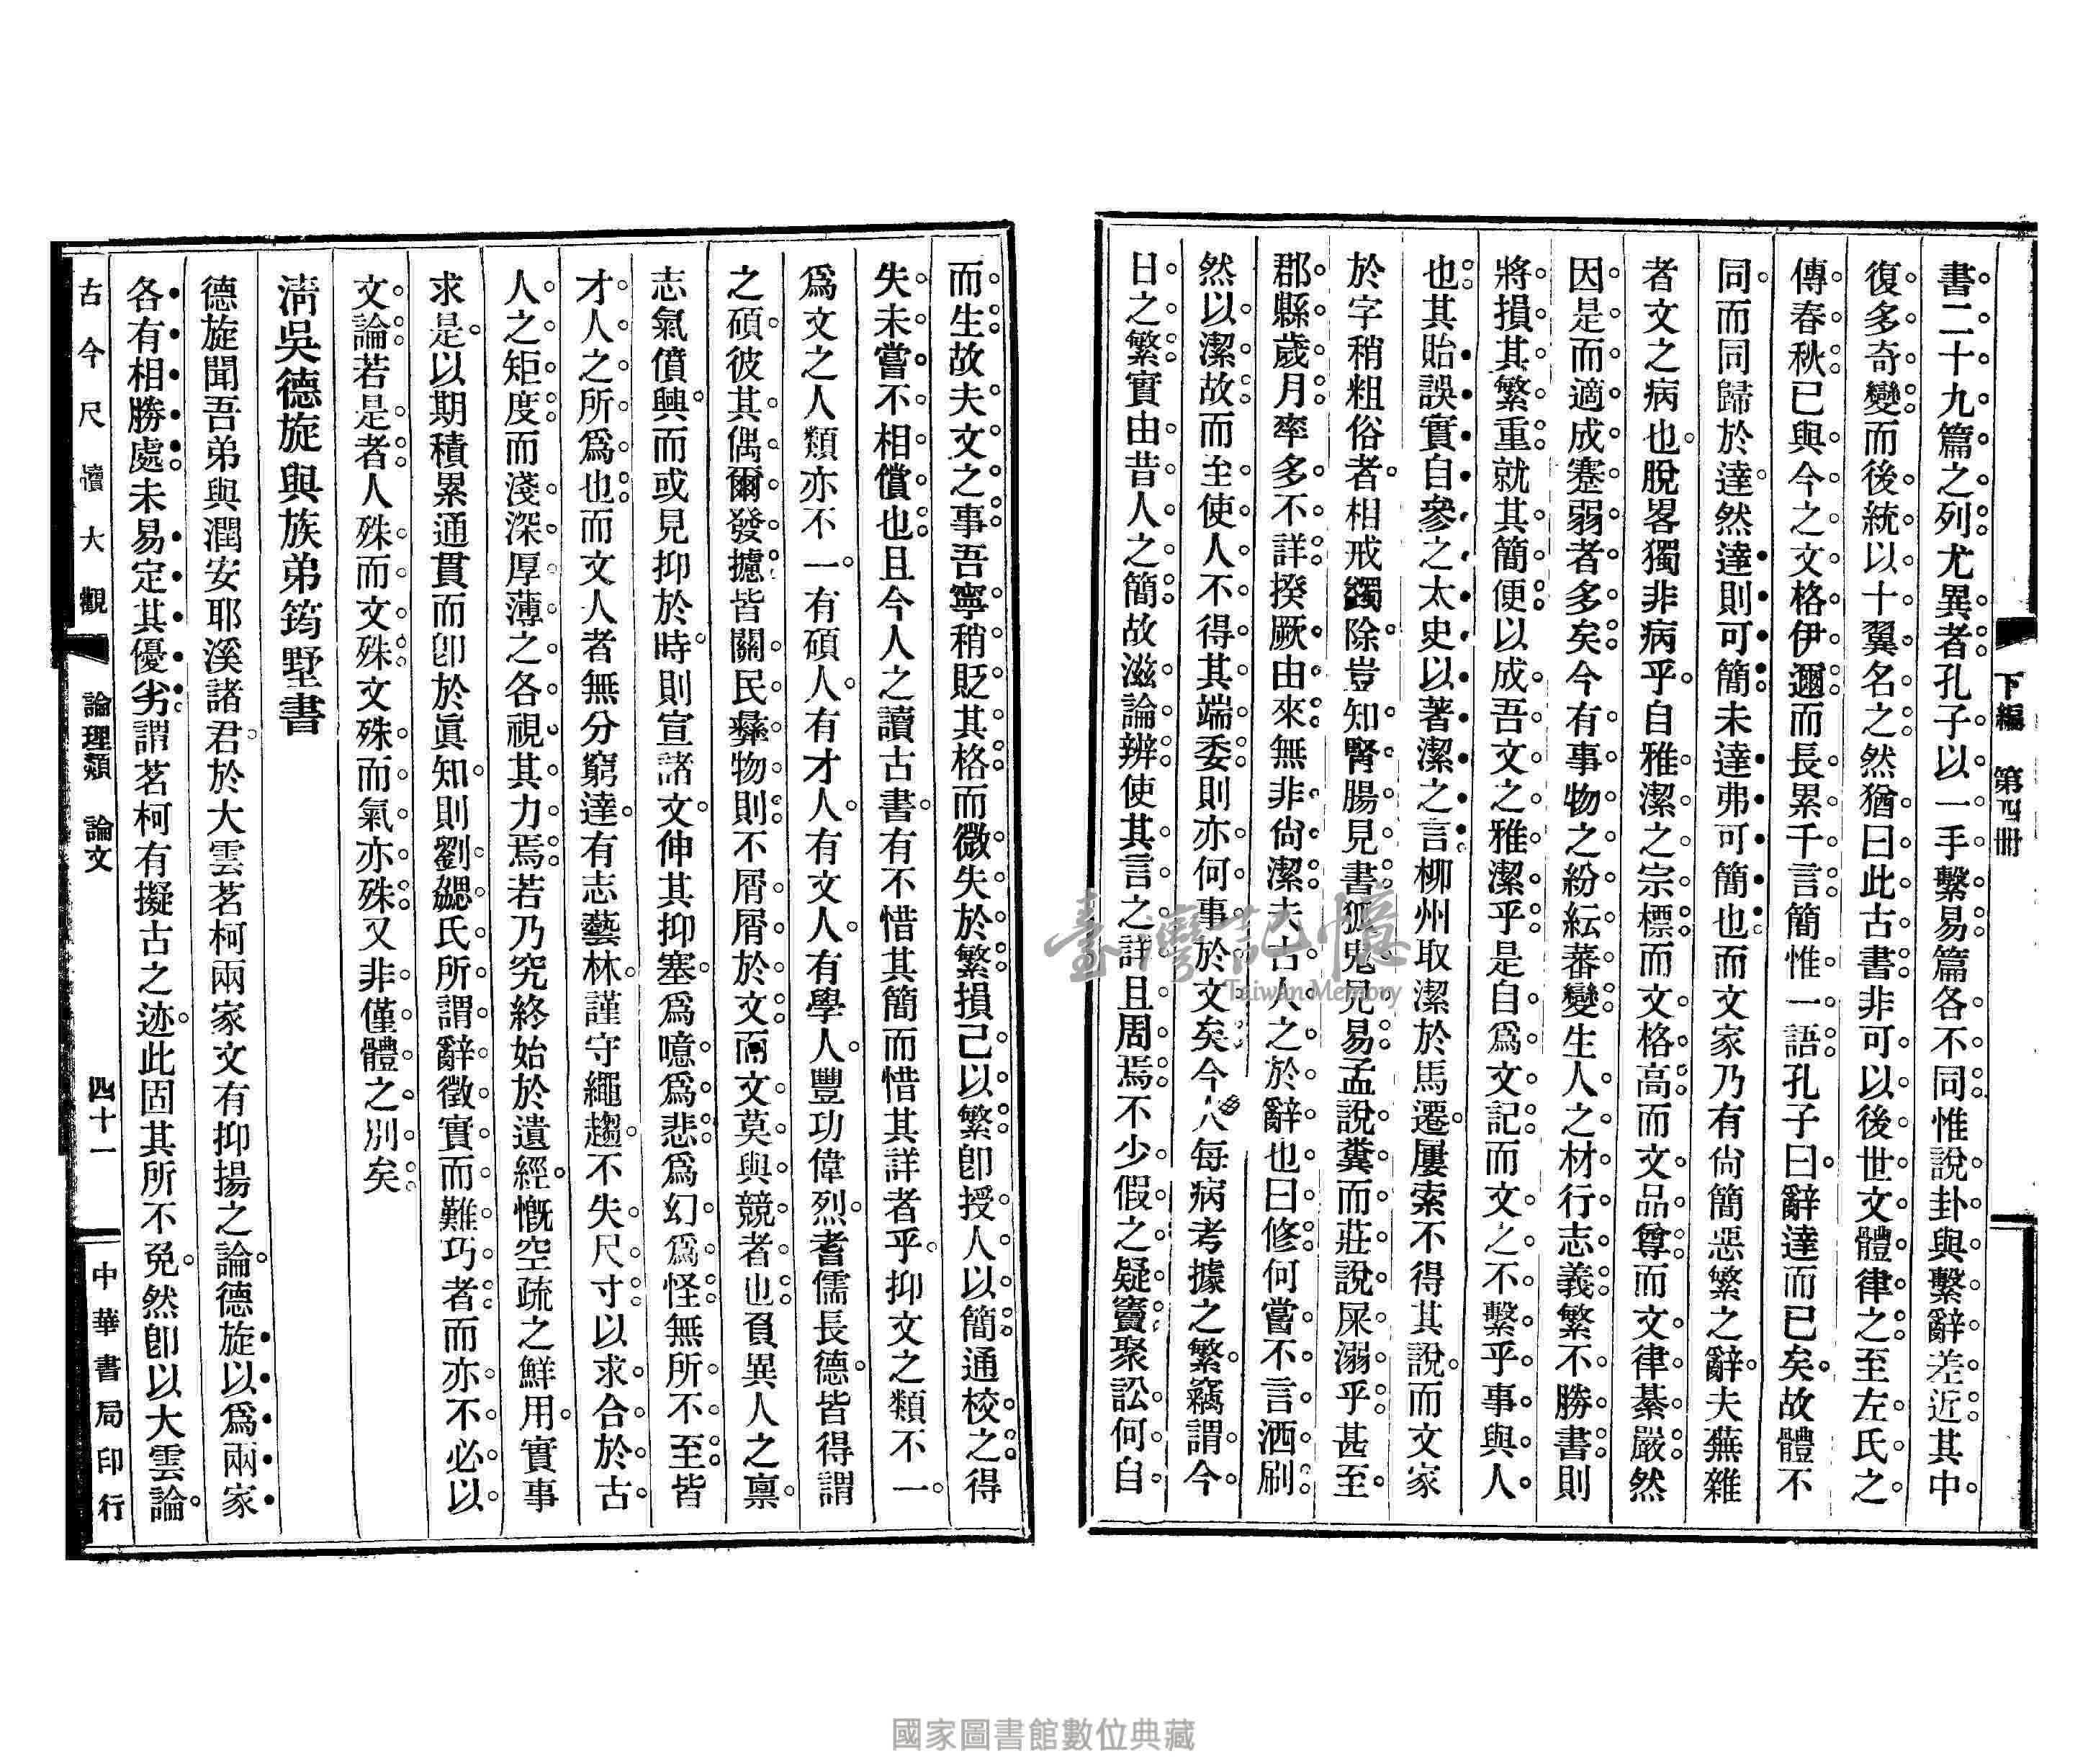 下編　第四冊
書二十九篇之列尤異者孔子以一手繫易篇各不同惟說卦與繫辭差近其中
復多奇變而後統以十翼名之然猶曰此古書非可以後世文體律之至左氏之
傳春秋已與今之文格伊邇而長累千言簡惟一語孔子曰辭達而已矣故體不
同而同歸於達然達則可簡未達弗可簡也而文家乃有尙簡惡繁之辭夫蕪雜
者文之病也脫畧獨非病乎自雅潔之宗標而文格高而文品尊而文律綦嚴然
因是而適成蹇弱者多矣今有事物之紛紜蕃變生人之材行志義繁不勝書則
將損其繁重就其簡便以成吾文之雅潔乎是自爲文記而文之不繫乎事與人
也其貽誤實自參之太史以著潔之言柳州取潔於馬遷屢索不得其說而文家
於字稍粗俗者相戒蠲除豈知腎腸見書狐鬼見易孟說糞而莊說屎溺乎甚至
郡縣歲月率多不詳揆厥由來無非尙潔夫古人之於辭也曰修何嘗不言洒刷
然以潔故而至使人不得其端委則亦何事於文矣今人每病考據之繁竊謂今
日之繁實由昔人之簡故滋論辨使其言之詳且周焉不少假之疑竇聚訟何自
而生故夫文之事吾寧稍貶其格而微失於繁損己以繁卽授人以簡通校之得
失未嘗不相償也且今人之讀古書有不惜其簡而惜其詳者乎抑文之類不一
爲文之人類亦不一有碩人有才人有文人有學人豐功偉烈耆儒長德皆得謂
之碩彼其偶爾發攄皆關民彝物則不屑屑於文而文莫與競者也負異人之稟
志氣僨興而或見抑於時則宣諸文伸其抑塞爲噫爲悲爲幻爲怪無所不至皆
才人之所爲也而文人者無分窮達有志藝林謹守繩趨不失尺寸以求合於古
人之矩度而淺深厚薄之各視其力焉若乃究終始於遺經慨空疏之鮮用實事
求是以期積累通貫而卽於眞知則劉勰氏所謂辭徵實而難巧者而亦不必以
文論若是者人殊而文殊文殊而氣亦殊又非僅體之別矣
淸吳德旋與族弟筠墅書
德旋聞吾弟與潤安耶溪諸君於大雲茗柯兩家文有抑揚之論德旋以爲兩家
各有相勝處未易定其優劣謂茗柯有擬古之迹此固其所不免然卽以大雲論
古今尺牘大觀　論理類　論文　四十一　中華書局印行
臺灣記憶
Taiwan Memory
國家圖書館數位典藏